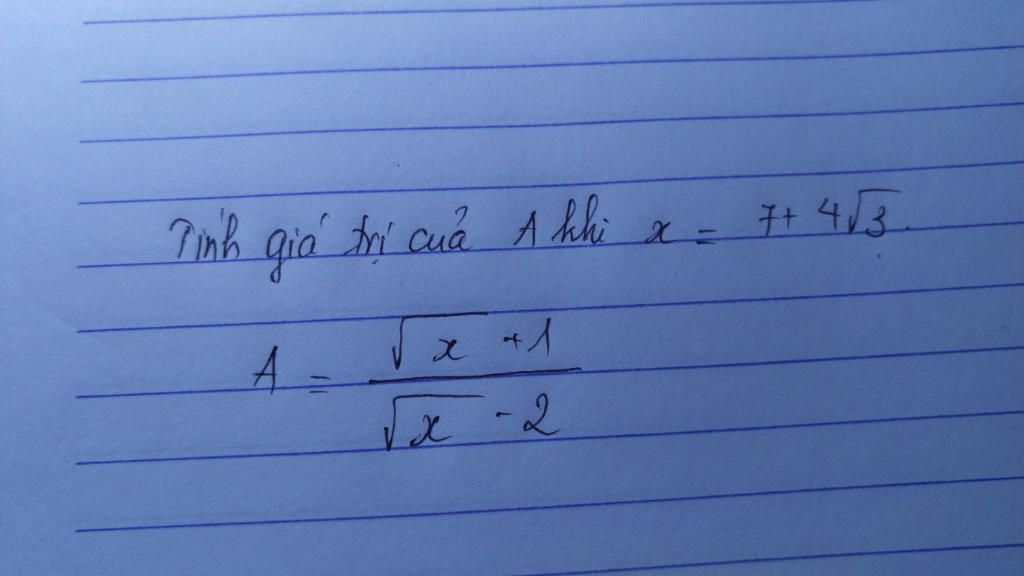 Tính giá trị của A khi x = 7 + 4√3.
A = (√x + 1) / (√x - 2)